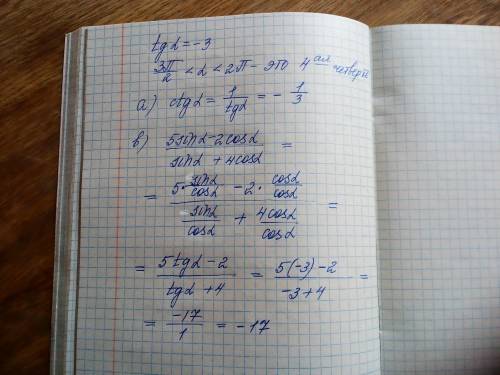 tgα = -3
3π/2 < α < 2π - это 4 ая четверть
а) ctgα = 1/tgα = - 1/3
в) (5sinα - 2cosα)/(sinα + 4cosα) =
= (5· sinα/cosα - 2· cosα/cosα)/(sinα/cosα + 4cosα/cosα) =
= (5tgα - 2)/(tgα + 4) = (5(-3) - 2)/(-3 + 4) =
= -17/1 = -17